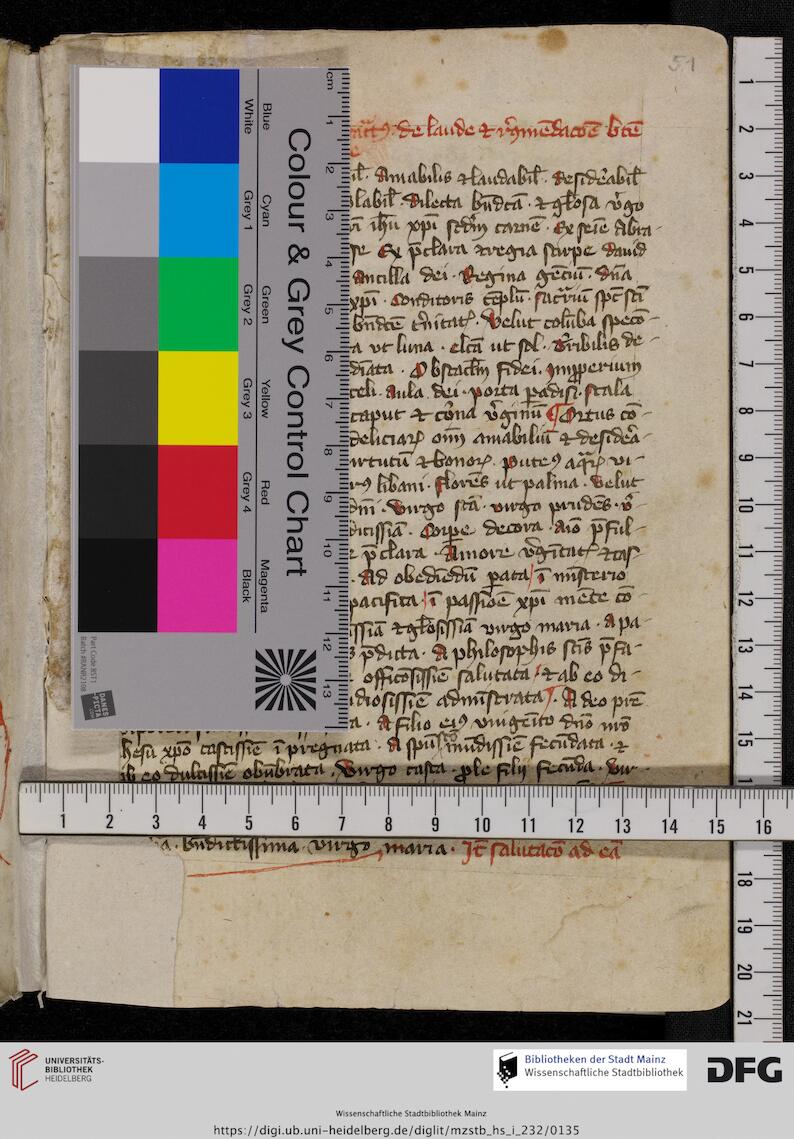 51
de laude et
il. Amabilis et laudabil. desid'abil
labil. dilecta bndca. et gl'osa v'go
ihu xpi scdm carne. Ex
Ex p'clara et regia stirpe david
Ancilla dei. Regina genciu. dna
xpi. Conditoris teplu. spc sci
t'nitat. Velut coluba speco-
a vt luna. elca ut sol. t'ribilis de-
fidei.
celi. Aula dei. porta padisi. scala
caput et co'na v'ginu Ortus co-
deliciar oim amabiliu et desid'a-
irtutu et bonor. puteus aqr vi-
libani. florens ut palma. velut
dni. virgo sca. virgo prudes. v'-
dicissia. Corpe decora. aio p'ful-
p'clara. Amore v'gitat et cas-
Ad obediedu pata i misterio
pacifica i passioe xpi mete co-
ssia et gl'osissia virgo maria. A pa-
p'dicta. A philosophis scis p'fa-
officosissie salutata et ab eo di-
diosissie administrata. A deo pre
a. A filio eius vnigeito dno nro
hesu xpo castissie i pregnata. A spu sco mudissie fecudata. et
ab eo dulcissie obubrata. Virgo casta. ple filii fecuda. vir-
bndictissima. virgo maria. Ite salutaco ad ea
cm
1
2
3
4
5
6
7
8
9
10
11
12
13
Colour & Grey Control Chart
Blue
Cyan
Green
Yellow
Red
Magenta
White
Grey 1
Grey 2
Grey 3
Grey 4
Black
Part Code BST1
DANES
-PICTA
.COM
1
2
3
4
5
6
7
8
9
10
11
12
13
14
15
16
1
2
3
4
5
6
7
8
9
10
11
12
13
14
15
18
19
20
21
UNIVERSITÄTS-
BIBLIOTHEK
HEIDELBERG
Bibliotheken der Stadt Mainz
Wissenschaftliche Stadtbibliothek
DFG
Wissenschaftliche Stadtbibliothek Mainz
https://digi.ub.uni-heidelberg.de/diglit/mzstb_hs_i_232/0135